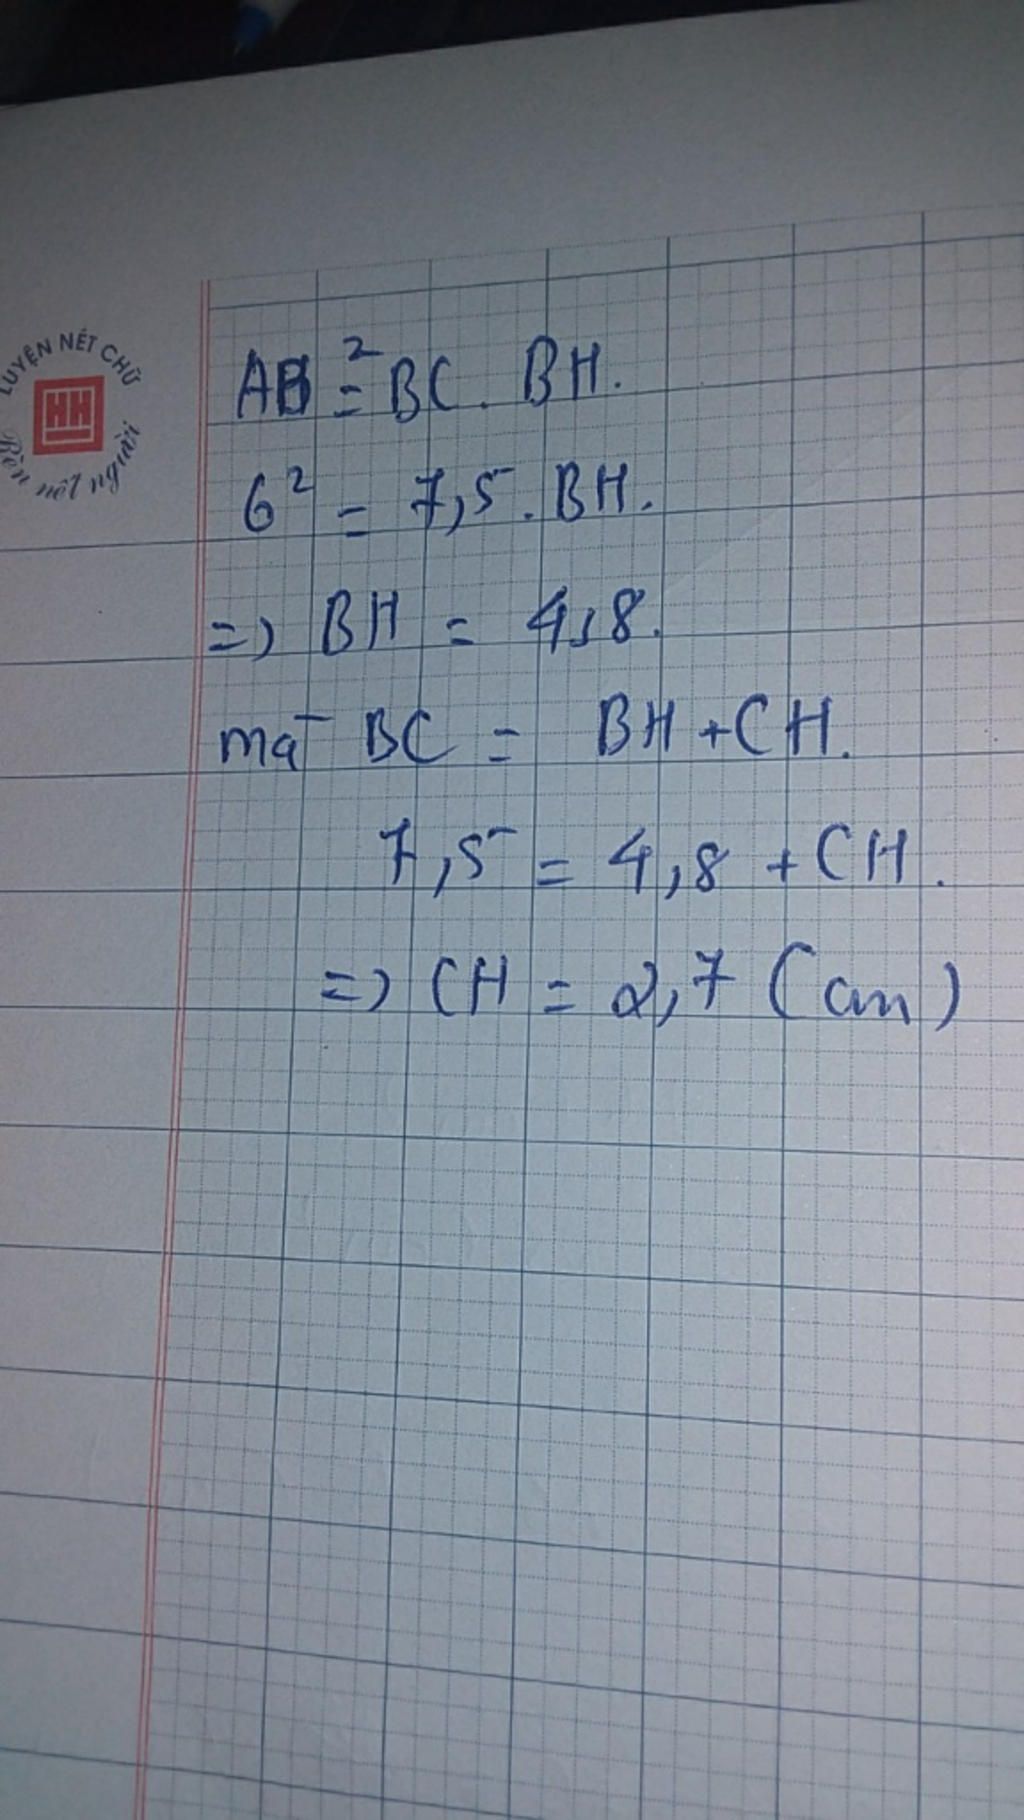 LUYỆN NÉT CHỮ
HH
Rèn nết người
AB² = BC . BH.
6² = 7,5 . BH.
=> BH = 4,8.
mà BC = BH + CH.
7,5 = 4,8 + CH.
=> CH = 2,7 (cm)